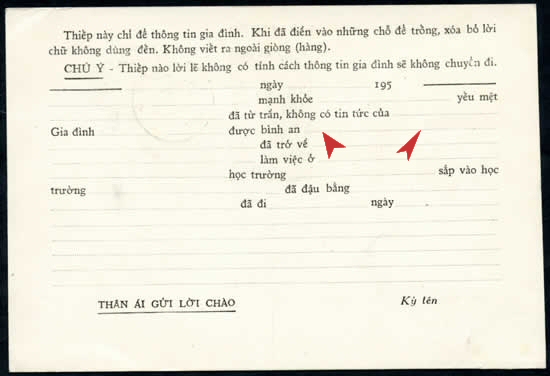 Thiếp này chỉ để thông tin gia đình. Khi đã điền vào những chỗ để trồng, xóa bỏ lời
chữ không dùng đến. Không viết ra ngoài giòng (hàng).
CHÚ Ý - Thiếp nào lời lẽ không có tính cách thông tin gia đình sẽ không chuyển đi.
ngày 195
mạnh khỏe yếu mệt
đã từ trần, không có tin tức của
Gia đình được bình an
đã trở về
làm việc ở
học trường sắp vào học
trường đã đậu bằng
đã đi ngày
THÂN ÁI GỬI LỜI CHÀO Ký tên